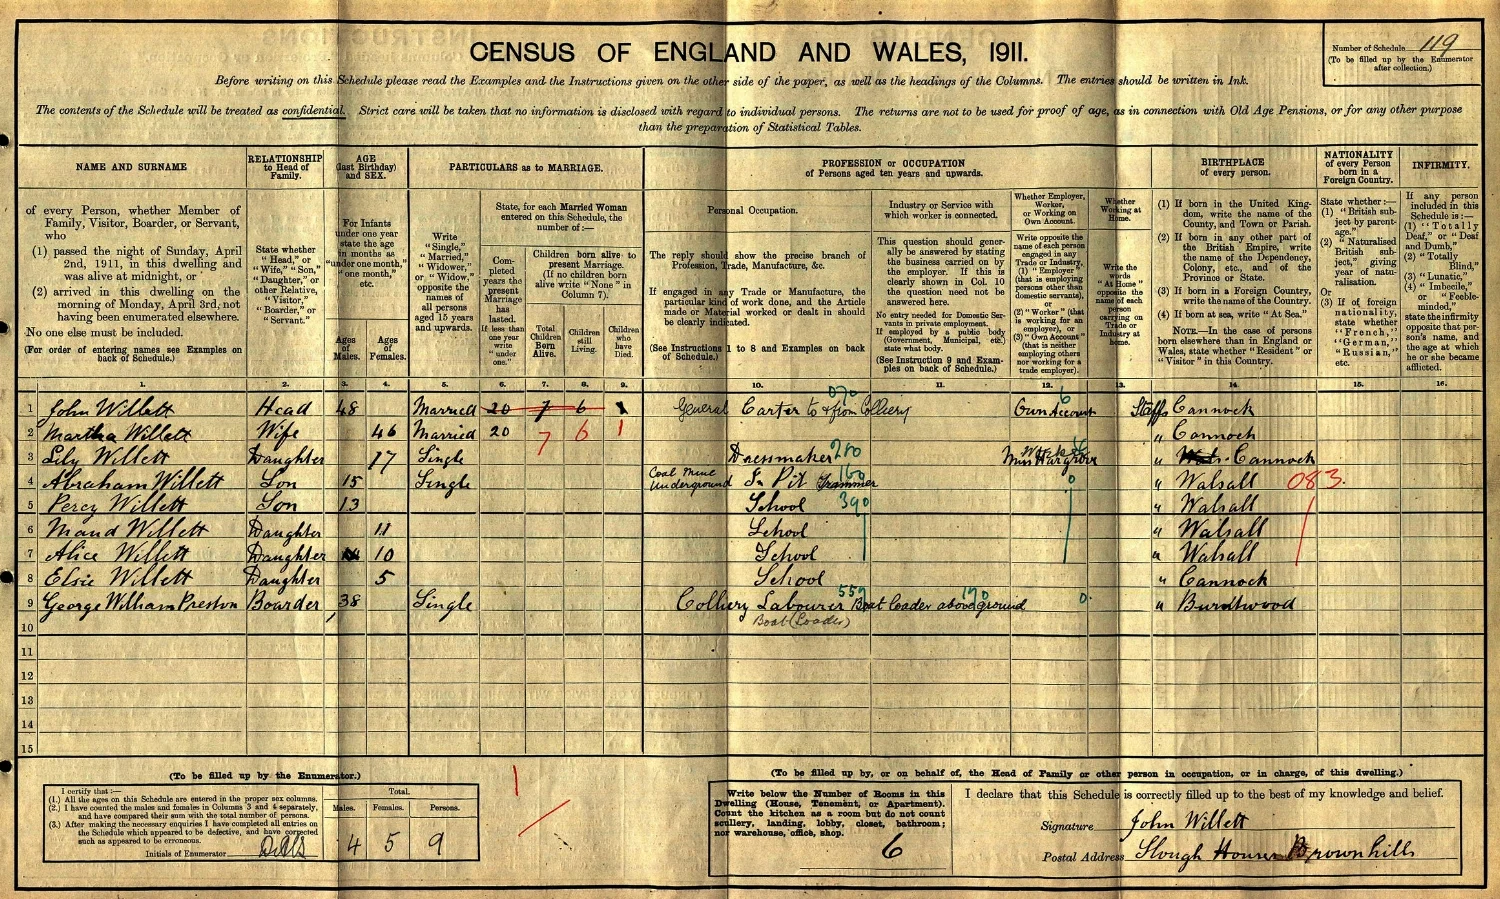 CENSUS OF ENGLAND AND WALES, 1911.
Number of Schedule 119
(To be filled up by the Enumerator after collection.)
Before writing on this Schedule please read the Examples and the Instructions given on the other side of the paper, as well as the headings of the Columns. The entries should be written in Ink.
The contents of the Schedule will be treated as confidential. Strict care will be taken that no information is disclosed with regard to individual persons. The returns are not to be used for proof of age, as in connection with Old Age Pensions, or for any other purpose
than the preparation of Statistical Tables.
NAME AND SURNAME
of every Person, whether Member of
Family, Visitor, Boarder, or Servant,
who
(1) passed the night of Sunday, April
2nd, 1911, in this dwelling and
was alive at midnight, or
(2) arrived in this dwelling on the
morning of Monday, April 3rd, not
having been enumerated elsewhere.
No one else must be included.
(For order of entering names see Examples on
back of Schedule.)
RELATIONSHIP
to Head of
Family.
State whether
"Head," or
"Wife," "Son,"
"Daughter," or
other Relative,
"Visitor,"
"Boarder," or
"Servant."
AGE
(last Birthday)
and SEX.
For Infants
under one year
state the age
in months as
"under one month,"
"one month,"
etc.
Ages
of
Males.
Ages
of
Females.
PARTICULARS as to MARRIAGE.
Write
"Single,"
"Married,"
"Widower,"
or "Widow,"
opposite the
names of
all persons
aged 15 years
and upwards.
State, for each Married Woman
entered on this Schedule, the
number of:—
Completed
years the
present
Marriage
has
lasted.
If less than
one year
write
"under
one."
Children born alive to
present Marriage.
(If no children born
alive write "None" in
Column 7).
Total
Children
Born
Alive.
Children
still
Living.
Children
who
have
Died.
PROFESSION or OCCUPATION
of Persons aged ten years and upwards.
Personal Occupation.
The reply should show the precise branch of
Profession, Trade, Manufacture, &c.
If engaged in any Trade or Manufacture, the
particular kind of work done, and the Article
made or Material worked or dealt in should
be clearly indicated.
(See Instructions 1 to 8 and Examples on back
of Schedule.)
Industry or Service with
which worker is connected.
This question should generally be answered by stating
the business carried on by
the employer. If this is
clearly shown in Col. 10
the question need not be
answered here.
No entry needed for Domestic Servants in private employment.
If employed by a public body
(Government, Municipal, etc.)
state what body.
(See Instruction 9 and Examples on back of Schedule.)
Whether Employer,
Worker,
or Working on
Own Account.
Write opposite the
name of each person
engaged in any
Trade or Industry,
(1) "Employer"
(that is employing
persons other than
domestic servants),
or
(2) "Worker" (that
is working for an
employer), or
(3) "Own Account"
(that is neither
employing others
nor working for a
trade employer).
Whether
Working at
Home.
Write the
words
"At Home"
opposite the
name of each
person
carrying on
Trade or
Industry at
home.
BIRTHPLACE
of every person.
(1) If born in the United Kingdom, write the name of the
County, and Town or Parish.
(2) If born in any other part of
the British Empire, write
the name of the Dependency,
Colony, etc., and of the
Province or State.
(3) If born in a Foreign Country,
write the name of the Country.
(4) If born at sea, write "At Sea."
NOTE.—In the case of persons
born elsewhere than in England or
Wales, state whether "Resident" or
"Visitor" in this Country.
NATIONALITY
of every Person
born in a
Foreign Country.
State whether:—
(1) "British subject by parentage."
(2) "Naturalised
British subject," giving
year of naturalisation.
Or
(3) If of foreign
nationality,
state whether
"French,"
"German,"
"Russian,"
etc.
INFIRMITY.
If any person
included in this
Schedule is:—
(1) "Totally
Deaf," or "Deaf
and Dumb,"
(2) "Totally
Blind,"
(3) "Lunatic,"
(4) "Imbecile,"
or "Feeble-minded,"
state the infirmity
opposite that person's name, and
the age at which
he or she became
afflicted.
1. 2. 3. 4. 5. 6. 7. 8. 9. 10. 11. 12. 13. 14. 15. 16.
1 John Willett Head 48 Married 20 7 6 1 General Carter to & from Colliery 070 Own Account 6 Staffs Cannock
2 Martha Willett Wife 46 Married 20 7 6 1 " Cannock
3 Lily Willett Daughter 17 Single Dressmaker Miss Hargrover " Cannock
4 Abraham Willett Son 15 Single Coal Mine Underground In Pit Trammer 160 0 " Walsall 083.
5 Percy Willett Son 13 School 390 " Walsall
6 Maud Willett Daughter 11 School " Walsall
7 Alice Willett Daughter 10 School " Walsall
8 Elsie Willett Daughter 5 School " Cannock
9 George William Preston Boarder 38 Single Colliery Labourer Boat loader above ground 0. " Burntwood
10 Boat (Loader)
11
12
13
14
15
(To be filled up by the Enumerator.)
I certify that:—
(1.) All the ages on this Schedule are entered in the proper sex columns.
(2.) I have counted the males and females in Columns 3 and 4 separately,
and have compared their sum with the total number of persons.
(3.) After making the necessary enquiries I have completed all entries on
the Schedule which appeared to be defective, and have corrected
such as appeared to be erroneous.
Initials of Enumerator
Total.
Males. Females. Persons.
4 5 9
(To be filled up by, or on behalf of, the Head of Family or other person in occupation, or in charge, of this dwelling.)
Write below the Number of Rooms in this
Dwelling (House, Tenement, or Apartment).
Count the kitchen as a room but do not count
scullery, landing, lobby, closet, bathroom;
nor warehouse, office, shop.
6
I declare that this Schedule is correctly filled up to the best of my knowledge and belief.
Signature John Willett
Postal Address Slough House Brownhills